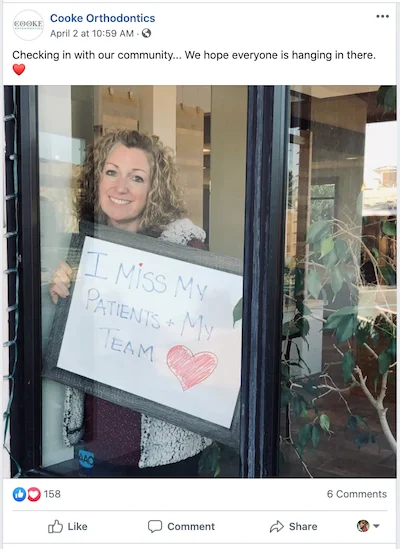 COOKE
Cooke Orthodontics
April 2 at 10:59 AM ·
Checking in with our community... We hope everyone is hanging in there.
I MISS MY
PATIENTS + MY
TEAM
AAO
158
6 Comments
Like
Comment
Share